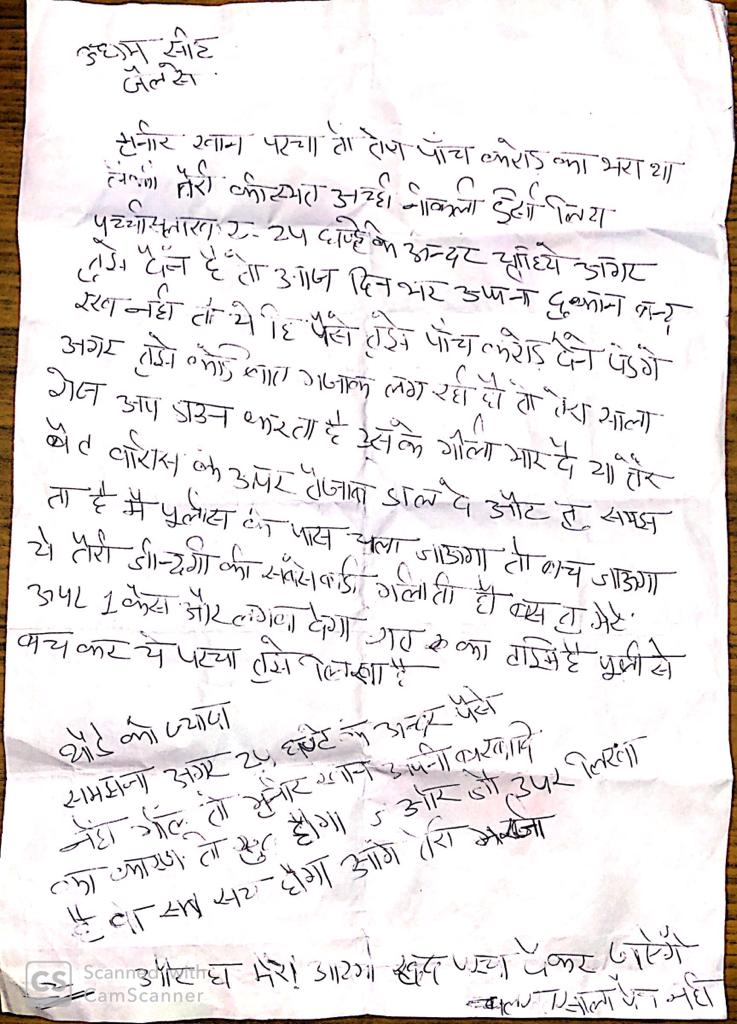 उधाम सीट
जैलसे
मुनीर खान परचा तो तेज पाँच करोड का भरा था
लेकीन तेरी कीस्मत अच्छी नीकली इसी लिय
पच्चीस लाख रु- 24 घण्टे के अन्दर चाहिये अगर
तुझे देने है तो आज दिन भर अपना दुकान बन्द
रख नही तो ये हि पैसे तुझे पाँच करोड देने पडेगे
अगर तुझे कोई बात मजाक लग रही हो तो तेरा साला
रोज अप डाउन करता है उसके गोली मार दे या तेरे
बेटे वारीस के उपर तेजाब डाल दे और तु समझ
ता है मै पुलीस के पास चला जाऊगा तो बच जाऊगा
ये तेरी जीन्दगी की सबसे बडी गलती है बस तु मेरे
उपर 1 केस और लगवा देगा का है पुलीसे
बच कर ये परचा तुझे लिखा है
थोडे को ज्यादा
समझना अगर 24 घण्टे के अन्दर पैसे
नही मीले तो मुनीर खान अपनी बरबादि
का कारण तो खुद होगा और जो उपर लिखा
है वो सब सच होगा आगे तेरी मरजी
और हा मेरे आदमी खुद परचा देकर जाएगे
नही